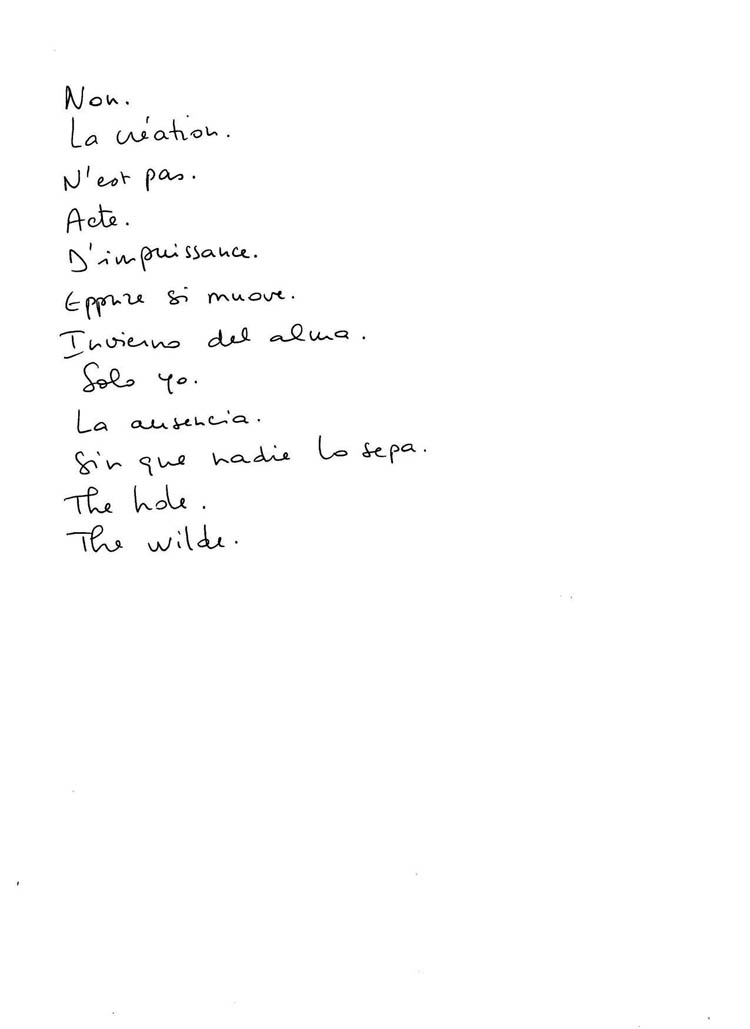 Non.
La création.
N'est pas.
Acte.
D'impuissance.
Eppure si muove.
Invierno del alma.
Solo yo.
La ausencia.
Sin que nadie lo sepa.
The hole.
The wilde.